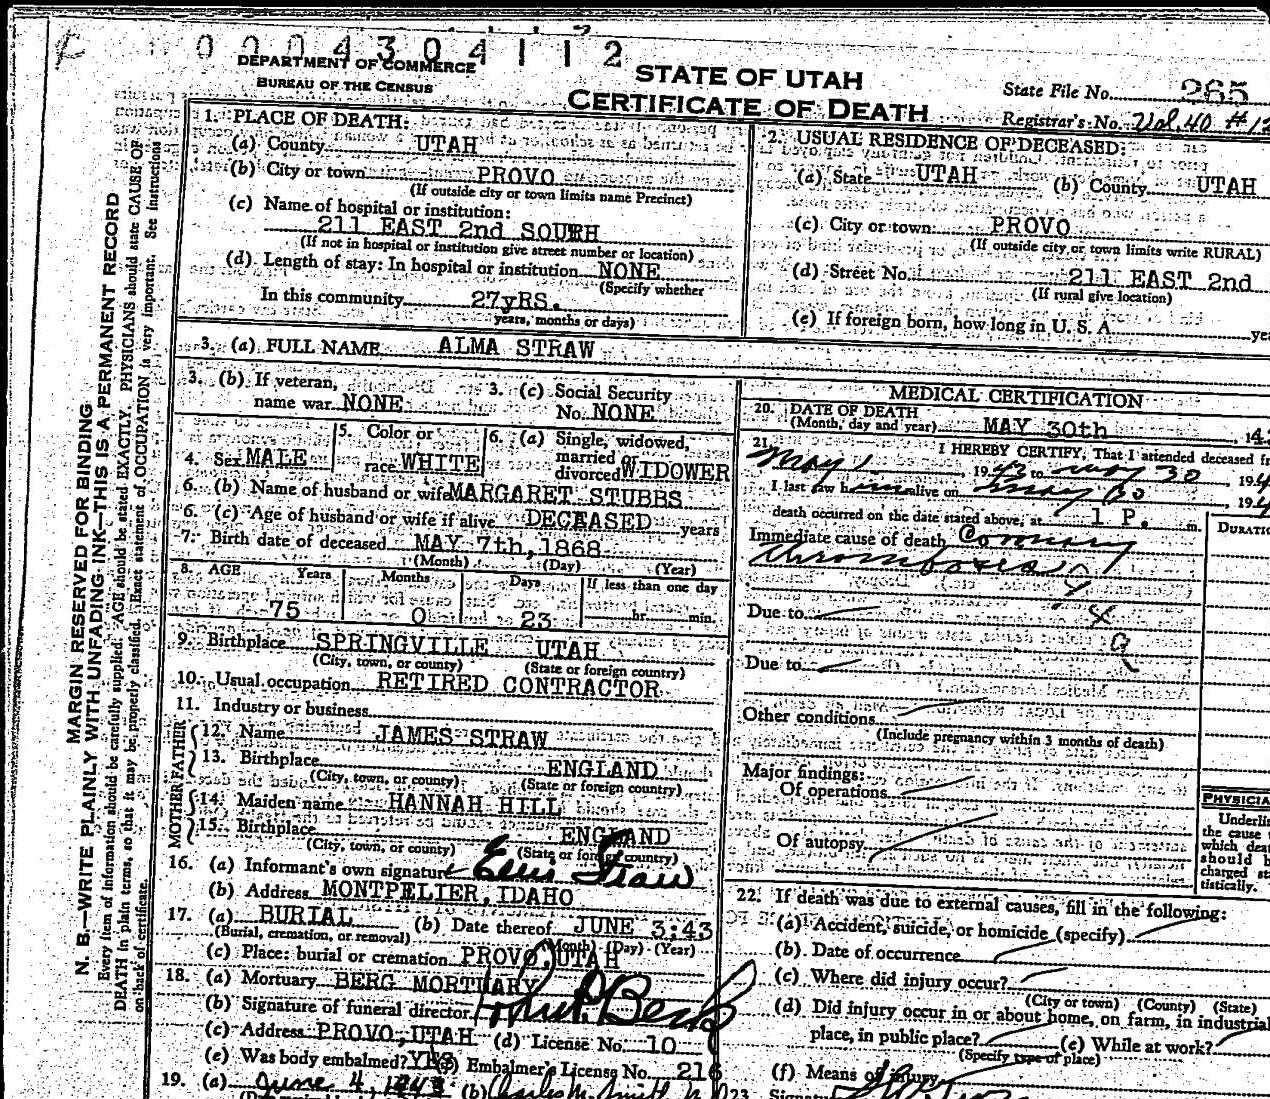 0 0 0 4 3 0 4 1 1 2
DEPARTMENT OF COMMERCE
BUREAU OF THE CENSUS
STATE OF UTAH
CERTIFICATE OF DEATH
State File No. 265
Registrar's No. Vol. 40 #12
MARGIN RESERVED FOR BINDING
N. B.—WRITE PLAINLY WITH UNFADING INK—THIS IS A PERMANENT RECORD
Every item of information should be carefully supplied. AGE should be stated EXACTLY. PHYSICIANS should state CAUSE OF
DEATH in plain terms, so that it may be properly classified. Exact statement of OCCUPATION is very important. See instructions
on back of certificate.
1. PLACE OF DEATH:
(a) County UTAH
(b) City or town PROVO
(If outside city or town limits name Precinct)
(c) Name of hospital or institution:
211 EAST 2nd SOUTH
(If not in hospital or institution give street number or location)
(d) Length of stay: In hospital or institution NONE
(Specify whether
In this community 27yRS.
years, months or days)
2. USUAL RESIDENCE OF DECEASED:
(a) State UTAH (b) County UTAH
(c) City or town PROVO
(If outside city or town limits write RURAL)
(d) Street No. 211 EAST 2nd
(If rural give location)
(e) If foreign born, how long in U. S. A. yea
3. (a) FULL NAME ALMA STRAW
3. (b) If veteran, name war NONE
3. (c) Social Security No. NONE
4. Sex MALE
5. Color or race WHITE
6. (a) Single, widowed, married or divorced WIDOWER
6. (b) Name of husband or wife MARGARET STUBBS
6. (c) Age of husband or wife if alive DECEASED years
7. Birth date of deceased MAY 7th, 1868
(Month) (Day) (Year)
8. AGE Years Months Days If less than one day
75 0 23 hr. min.
9. Birthplace SPRINGVILLE UTAH
(City, town, or county) (State or foreign country)
10. Usual occupation RETIRED CONTRACTOR
11. Industry or business
FATHER
12. Name JAMES STRAW
13. Birthplace ENGLAND
(City, town, or county) (State or foreign country)
MOTHER
14. Maiden name HANNAH HILL
15. Birthplace ENGLAND
(City, town, or county) (State or foreign country)
16. (a) Informant's own signature Straw
(b) Address MONTPELIER, IDAHO
17. (a) BURIAL (b) Date thereof JUNE 3:43
(Burial, cremation, or removal) (Month) (Day) (Year)
(c) Place: burial or cremation PROVO, UTAH
18. (a) Mortuary BERG MORTUARY
(b) Signature of funeral director
(c) Address PROVO, UTAH (d) License No. 10
(e) Was body embalmed? YES (f) Embalmer's License No. 216
19. (a) June 4, 1943 (b) Charles M. Smith
MEDICAL CERTIFICATION
20. DATE OF DEATH
(Month, day and year) MAY 30th, 143
21. I HEREBY CERTIFY, That I attended deceased fr
May 1 1943 to May 30, 194
I last saw him alive on May 30, 194
death occurred on the date stated above, at 1 P. m.
Immediate cause of death Coronary
thrombosis
DURATIO
Due to
Due to
Other conditions
(Include pregnancy within 3 months of death)
Major findings:
Of operations
Of autopsy
PHYSICIA
Underlin
the cause
which deat
should b
charged sta
tistically.
22. If death was due to external causes, fill in the following:
(a) Accident, suicide, or homicide (specify)
(b) Date of occurrence
(c) Where did injury occur?
(City or town) (County) (State)
(d) Did injury occur in or about home, on farm, in industrial
place, in public place? (e) While at work?
(Specify type of place)
(f) Means of injury
23. Signature